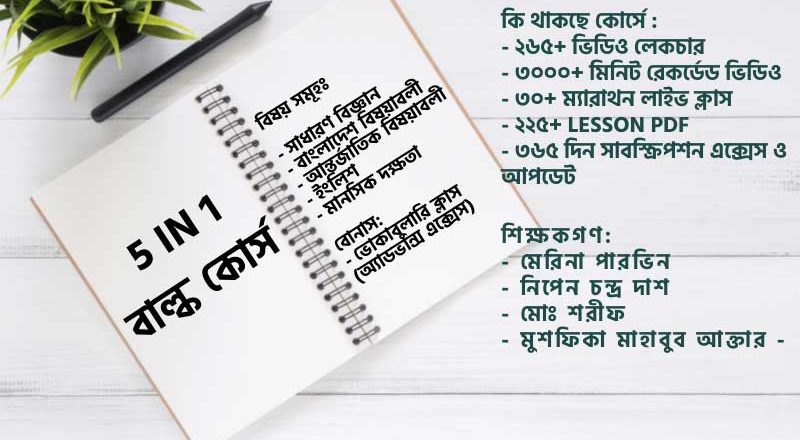 5 IN 1
বাল্ক কোর্স
বিষয় সমূহঃ
- সাধারণ বিজ্ঞান
- বাংলাদেশ বিষয়াবলী
- আন্তর্জাতিক বিষয়াবলী
- ইংলিশ
- মানসিক দক্ষতা
বোনাস:
- ভোকাবুলারি ক্লাস
(অ্যাডভান্স এক্সেস)
কি থাকছে কোর্সে :
- ২৬৫+ ভিডিও লেকচার
- ৩০০০+ মিনিট রেকর্ডেড ভিডিও
- ৩০+ ম্যারাথন লাইভ ক্লাস
- ২২৫+ LESSON PDF
- ৩৬৫ দিন সাবস্ক্রিপশন এক্সেস ও
আপডেট
শিক্ষকগণ:
- মেরিনা পারভিন
- নিপেন চন্দ্র দাশ
- মোঃ শরীফ
- মুশফিকা মাহাবুব আক্তার -